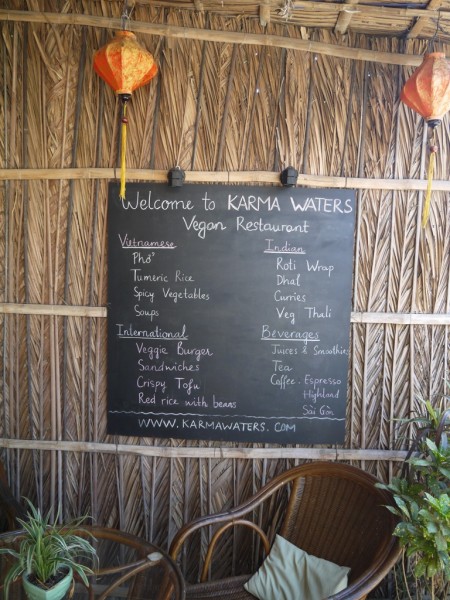 Welcome to KARMA WATERS
Vegan Restaurant
Vietnamese
Phở
Tumeric Rice
Spicy Vegetables
Soups
International
Veggie Burger
Sandwiches
Crispy Tofu
Red rice with beans
Indian
Roti Wrap
Dhal
Curries
Veg Thali
Beverages
Juices & Smoothies
Tea
Coffee - Espresso
Highland
Sài Gòn
WWW.KARMAWATERS.COM